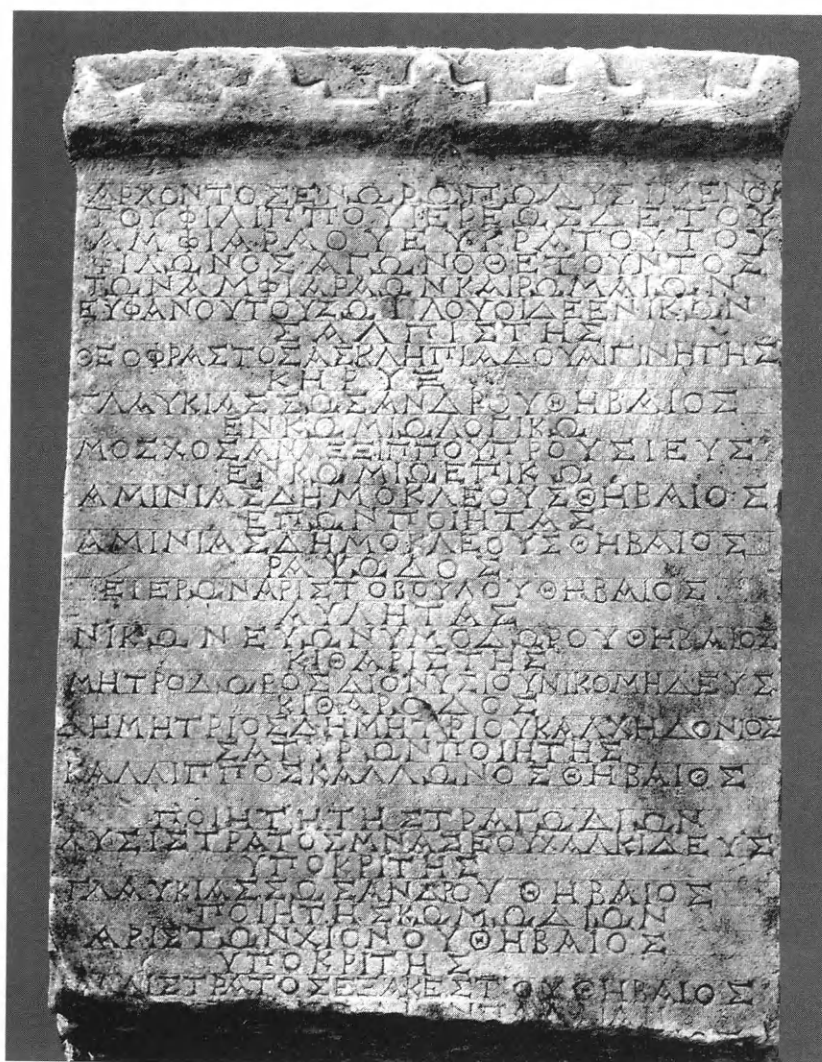 ΑΡΧΟΝΤΟΣΕΝΩΡΩΠΩΛΥΣΙΜΕΝΟΥ
ΤΟΥΦΙΛΙΠΠΟΥΙΕΡΕΩΣΔΕΤΟΥ
ΑΜΦΙΑΡΑΟΥΕΥΚΡΑΤΟΥΤΟΥ
ΦΙΛΩΝΟΣΑΓΩΝΟΘΕΤΟΥΝΤΟΣ
ΤΩΝΑΜΦΙΑΡΑΩΝΚΑΙΡΩΜΑΙΩΝ
ΕΥΦΑΝΟΥΤΟΥΣΩΙΛΟΥΟΙΔΕΕΝΙΚΩΝ
ΣΑΛΠΙΣΤΗΣ
ΘΕΟΦΡΑΣΤΟΣΑΣΚΛΗΠΙΑΔΟΥΑΙΓΙΝΗΤΗΣ
ΚΗΡΥΞ
ΓΛΑΥΚΙΑΣΣΩΣΑΝΔΡΟΥΘΗΒΑΙΟΣ
ΕΝΚΩΜΙΩΛΟΓΙΚΩ
ΜΟΣΧΟΣΑΝΑΞΙΠΠΟΥΠΡΟΥΣΙΕΥΣ
ΕΝΚΩΜΙΩΕΠΙΚΩ
ΑΜΙΝΙΑΣΔΗΜΟΚΛΕΟΥΣΘΗΒΑΙΟΣ
ΕΠΩΝΠΟΙΗΤΑΣ
ΑΜΙΝΙΑΣΔΗΜΟΚΛΕΟΥΣΘΗΒΑΙΟΣ
ΡΑΨΩΔΟΣ
ΕΙΕΡΩΝΑΡΙΣΤΟΒΟΥΛΟΥΘΗΒΑΙΟΣ
ΑΥΛΗΤΑΣ
ΝΙΚΩΝΕΥΩΝΥΜΟΔΩΡΟΥΘΗΒΑΙΟΣ
ΚΙΘΑΡΙΣΤΗΣ
ΜΗΤΡΟΔΩΡΟΣΔΙΟΝΥΣΙΟΥΝΙΚΟΜΗΔΕΥΣ
ΚΙΘΑΡΩΔΟΣ
ΔΗΜΗΤΡΙΟΣΔΗΜΗΤΡΙΟΥΚΑΛΧΗΔΟΝΙΟΣ
ΣΑΤΥΡΩΝΠΟΙΗΤΗΣ
ΚΑΛΛΙΠΠΟΣΚΑΛΛΩΝΟΣΘΗΒΑΙΟΣ
ΠΟΙΗΤΗΤΗΣΤΡΑΓΩΔΙΩΝ
ΛΥΣΙΣΤΡΑΤΟΣΜΝΑΣΕΟΥΧΑΛΚΙΔΕΥΣ
ΥΠΟΚΡΙΤΗΣ
ΓΛΑΥΚΙΑΣΣΩΣΑΝΔΡΟΥΘΗΒΑΙΟΣ
ΠΟΙΗΤΗΣΚΩΜΩΔΙΩΝ
ΑΡΙΣΤΩΝΧΙΟΝΟΥΘΗΒΑΙΟΣ
ΥΠΟΚΡΙΤΗΣ
ΚΑΛΛΙΣΤΡΑΤΟΣΕΞΑΚΕΣΤΟΥΘΗΒΑΙΟΣ